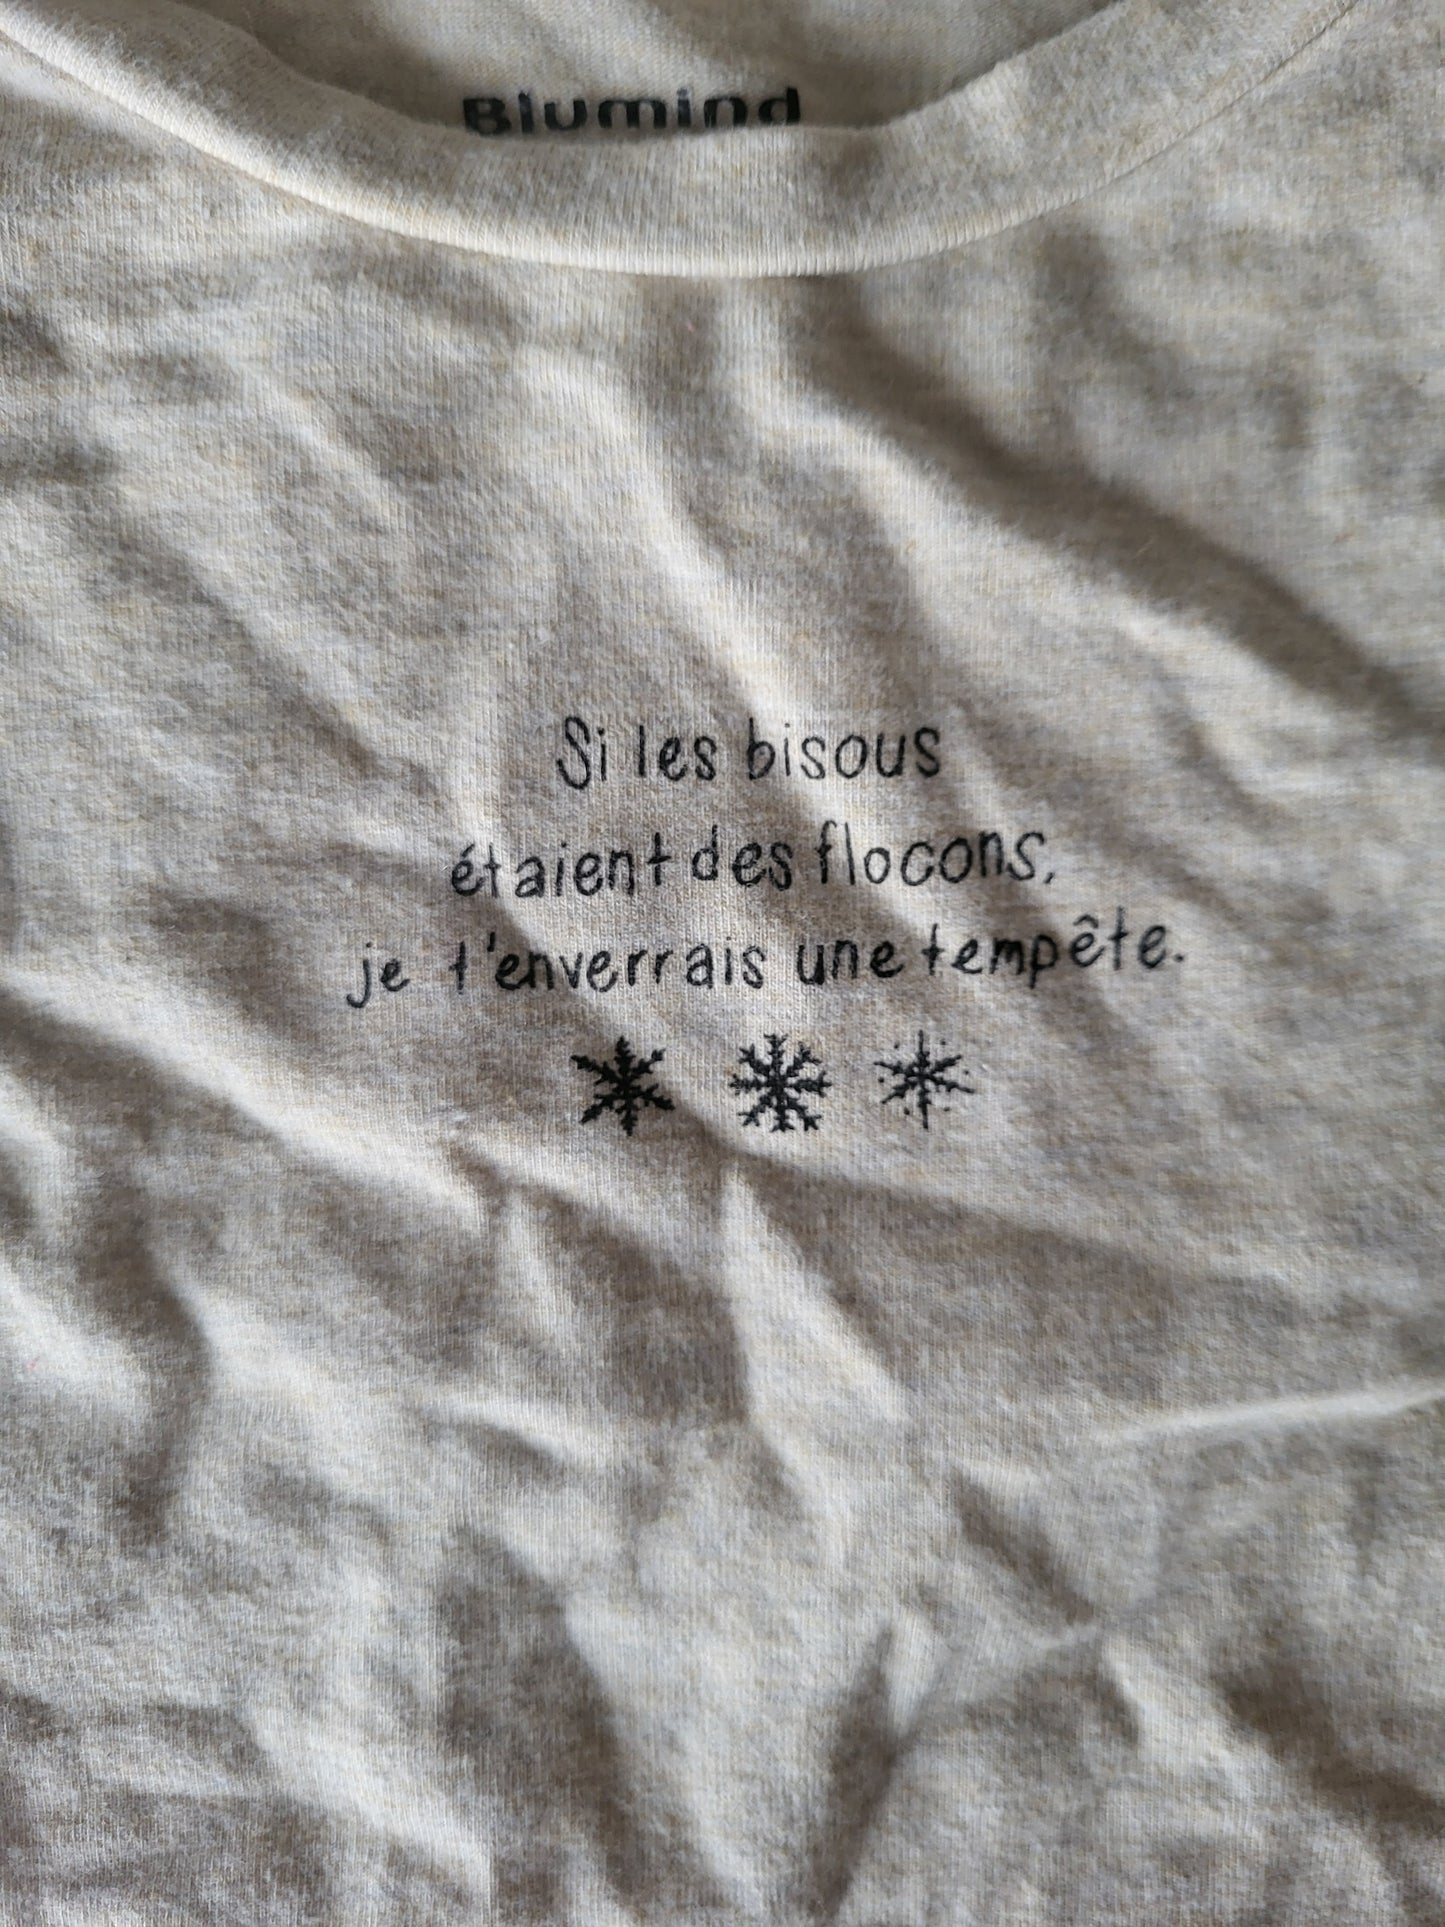 Blumind
Si les bisous
étaient des flocons,
je t'enverrais une tempête.